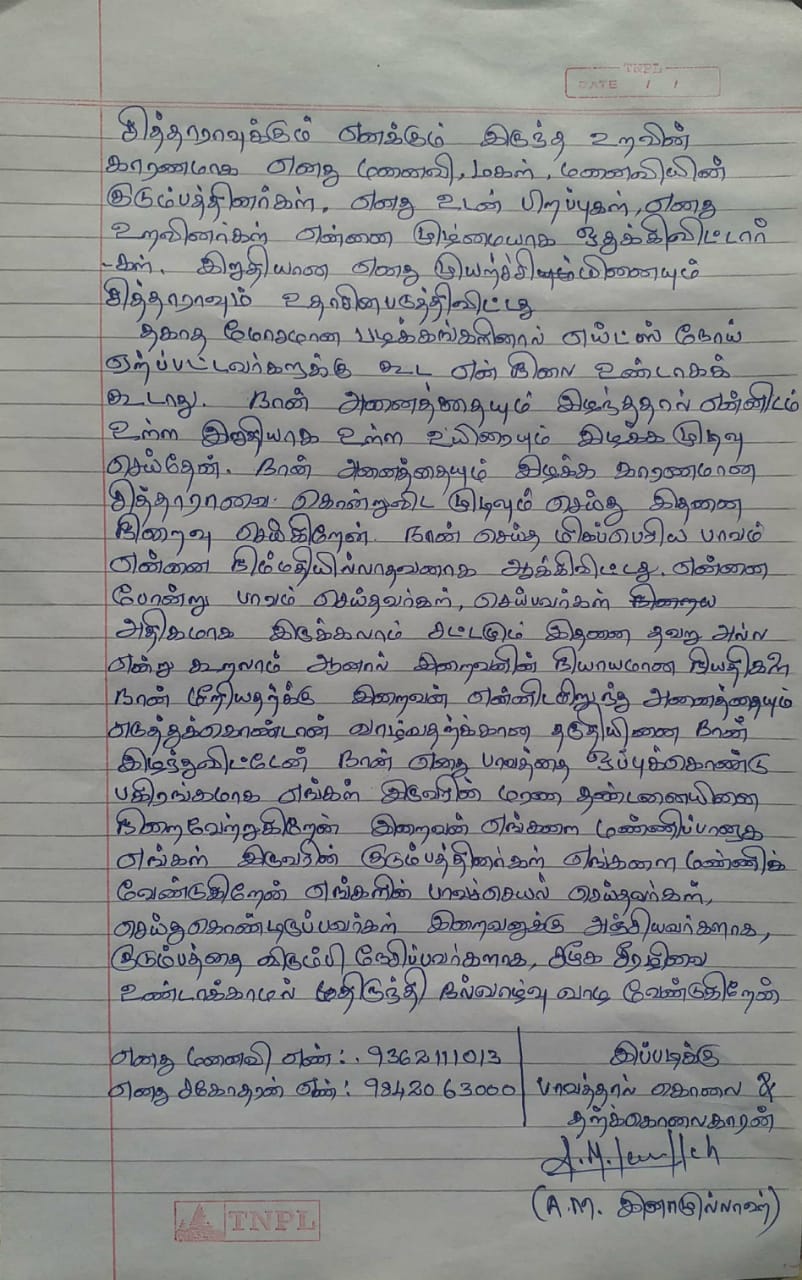 TNPL
DATE / /
சித்தாராவுக்கும் எனக்கும் இருந்த உறவின்
காரணமாக எனது மனைவி, மகள், மனைவியின்
குடும்பத்தினர்கள், எனது உடன் பிறப்புகள், எனது
உறவினர்கள் என்னை முழ்மையாக ஒதுக்கிவிட்டார்
-கள். இறுதியான எனது
சித்தாராவும் உதாசினபடுத்திவிட்டது
தகாத மோசமான படிக்கங்களினால் எய்ட்ஸ் நோய்
ஏற்பட்டவர்களுக்கு கூட என் நிலை உண்டாகக்
கூடாது. நான் அனைத்தையும் இழந்ததால் என்னிடம்
உள்ள இறுதியாக உள்ள உயிரையும் இழக்க முடிவு
செய்தேன். நான் அனைத்தையும் இழக்க காரணமான
சித்தாராவை கொன்றுவிட முடிவும் செய்து இதனை
நிறைவு செய்கிறேன். நான் செய்த மிகப்பெரிய பாவம்
என்னை நிம்மதியில்லாதவனாக ஆக்கிவிட்டது. என்னை
போன்று பாவம் செய்தவர்கள், செய்பவர்கள்
அதிகமாக இருக்கலாம் சட்டமும் இதனை தவறு அல்ல
என்று கூறலாம் ஆனால் இறைவனின் நியாயமான நியதிகளை
நான் மீறியதற்க்கு இறைவன் என்னிடசிறுந்து அனைத்தையும்
எடுத்துக்கொண்டான் வாழ்வதற்க்கான தகுதியினை நான்
இழந்துவிட்டேன் நான் எனது பாவத்தை ஒப்புக்கொண்டு
பகிரங்கமாக எங்கள் இருவரின் மரண தண்டனையினை
நிறைவேற்றுகிறேன் இறைவன் எங்களை மண்ணிப்பானாக
எங்கள் இருவரின் குடும்பத்தினர்கள் எங்களை மண்ணிக்
வேண்டுகிறேன் எங்களின் பாவச்செயல் செய்தவர்கள்,
செய்துகொண்டிருப்பவர்கள் இறைவனுக்கு அஞ்சியவர்களாக,
குடும்பத்தை விரும்பி நேசிப்பவர்களாக, சமூக சீரழிவை
உண்டாக்காமல் மனதிருந்தி நல்வாழ்வு வாழ வேண்டுகிறேன்
எனது மனைவி எண்: 9362111013
எனது சகோதரன் எண்: 9842063000
இப்படிக்கு
பாவத்தால் கொலை &
தற்க்கொலைகாரன்
(A.M. இனாமுல்லாஹ்)
TNPL